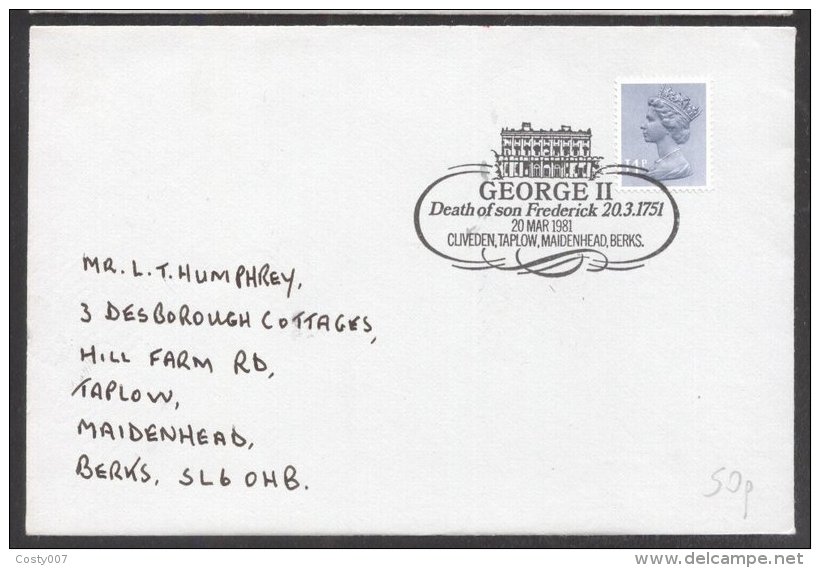 14P
GEORGE II
Death of son Frederick 20.3.1751
20 MAR 1981
CLIVEDEN, TAPLOW, MAIDENHEAD, BERKS.
MR. L. T. HUMPHREY,
3 DESBOROUGH COTTAGES,
HILL FARM RD,
TAPLOW,
MAIDENHEAD,
BERKS. SL6 0HB.
50p
Costy007
www.delcampe.net